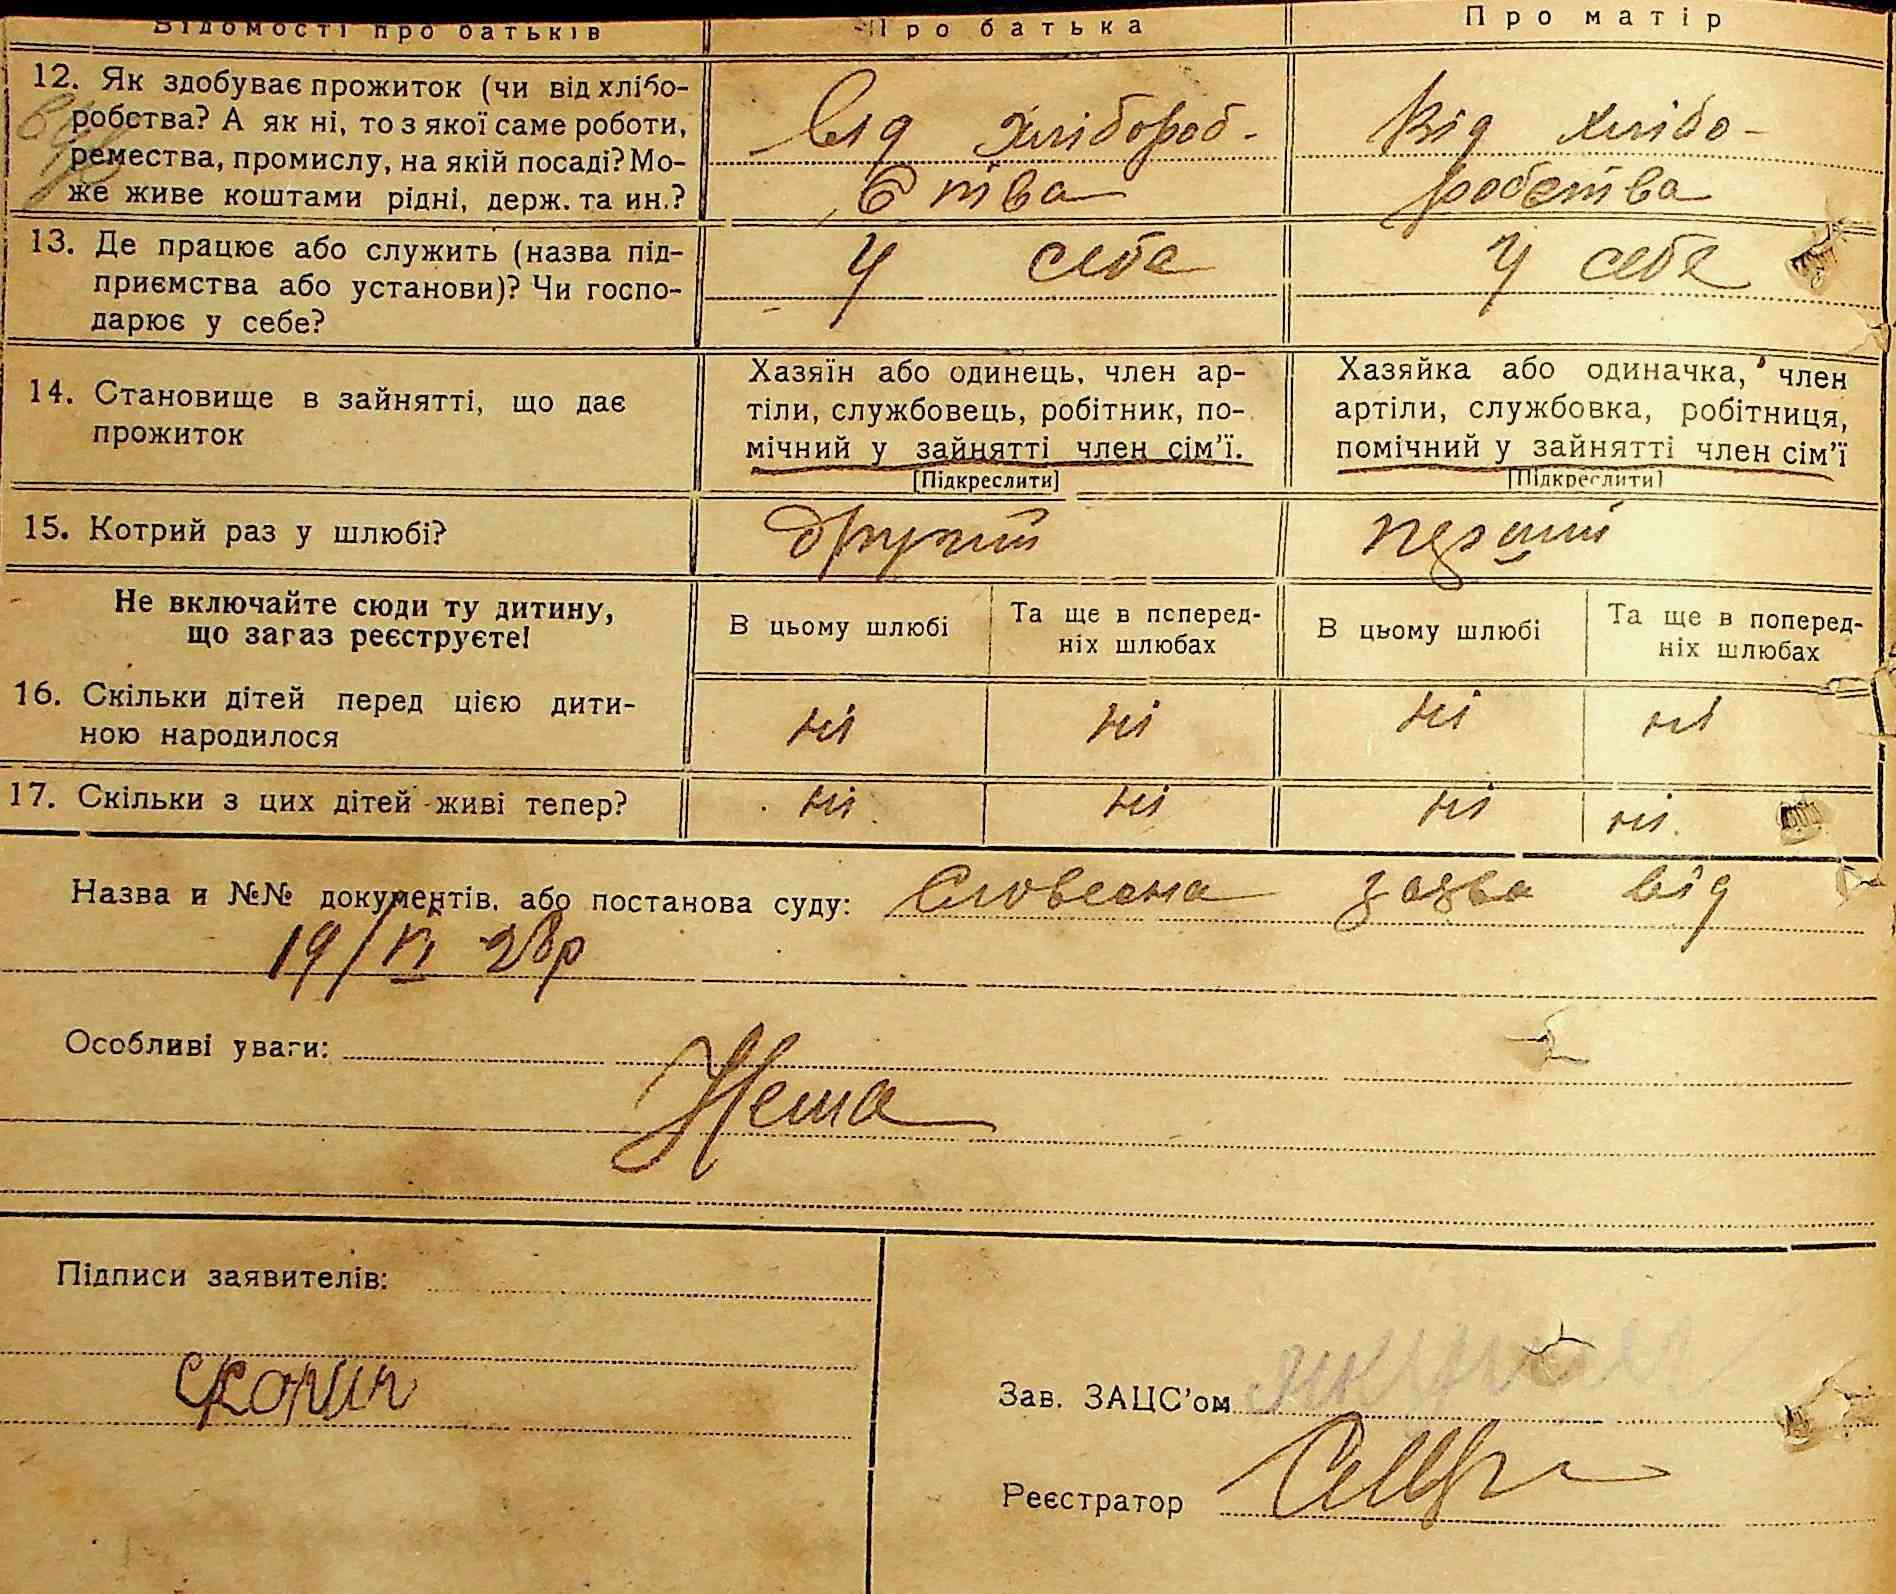 Відомості про батьків
Про батька
Про матір
12. Як здобуває прожиток (чи від хлібо-
робства? А як ні, то з якої саме роботи,
ремества, промислу, на якій посаді? Мо-
же живе коштами рідні, держ. та ин.?
Від хлібороб-
ства
Від хлібо-
робства
13. Де працює або служить (назва під-
приємства або установи)? Чи госпо-
дарює у себе?
У себе
У себе
14. Становище в зайнятті, що дає
прожиток
Хазяїн або одинець, член ар-
тіли, службовець, робітник, по-
мічний у зайнятті член сім'ї.
[Підкреслити]
Хазяйка або одиначка, член
артіли, службовка, робітниця,
помічний у зайнятті член сім'ї
[Підкреслити]
15. Котрий раз у шлюбі?
другий
перший
Не включайте сюди ту дитину,
що зараз реєструєте!
В цьому шлюбі
Та ще в поперед-
ніх шлюбах
В цьому шлюбі
Та ще в поперед-
ніх шлюбах
16. Скільки дітей перед цією дити-
ною народилося
ні ні ні ні
17. Скільки з цих дітей живі тепер?
ні ні ні ні
Назва и №№ документів, або постанова суду: Словесна заява від
19/VI 28р
Особливі уваги:
Нема
Підписи заявителів:
Зав. ЗАЦС'ом
Реєстратор